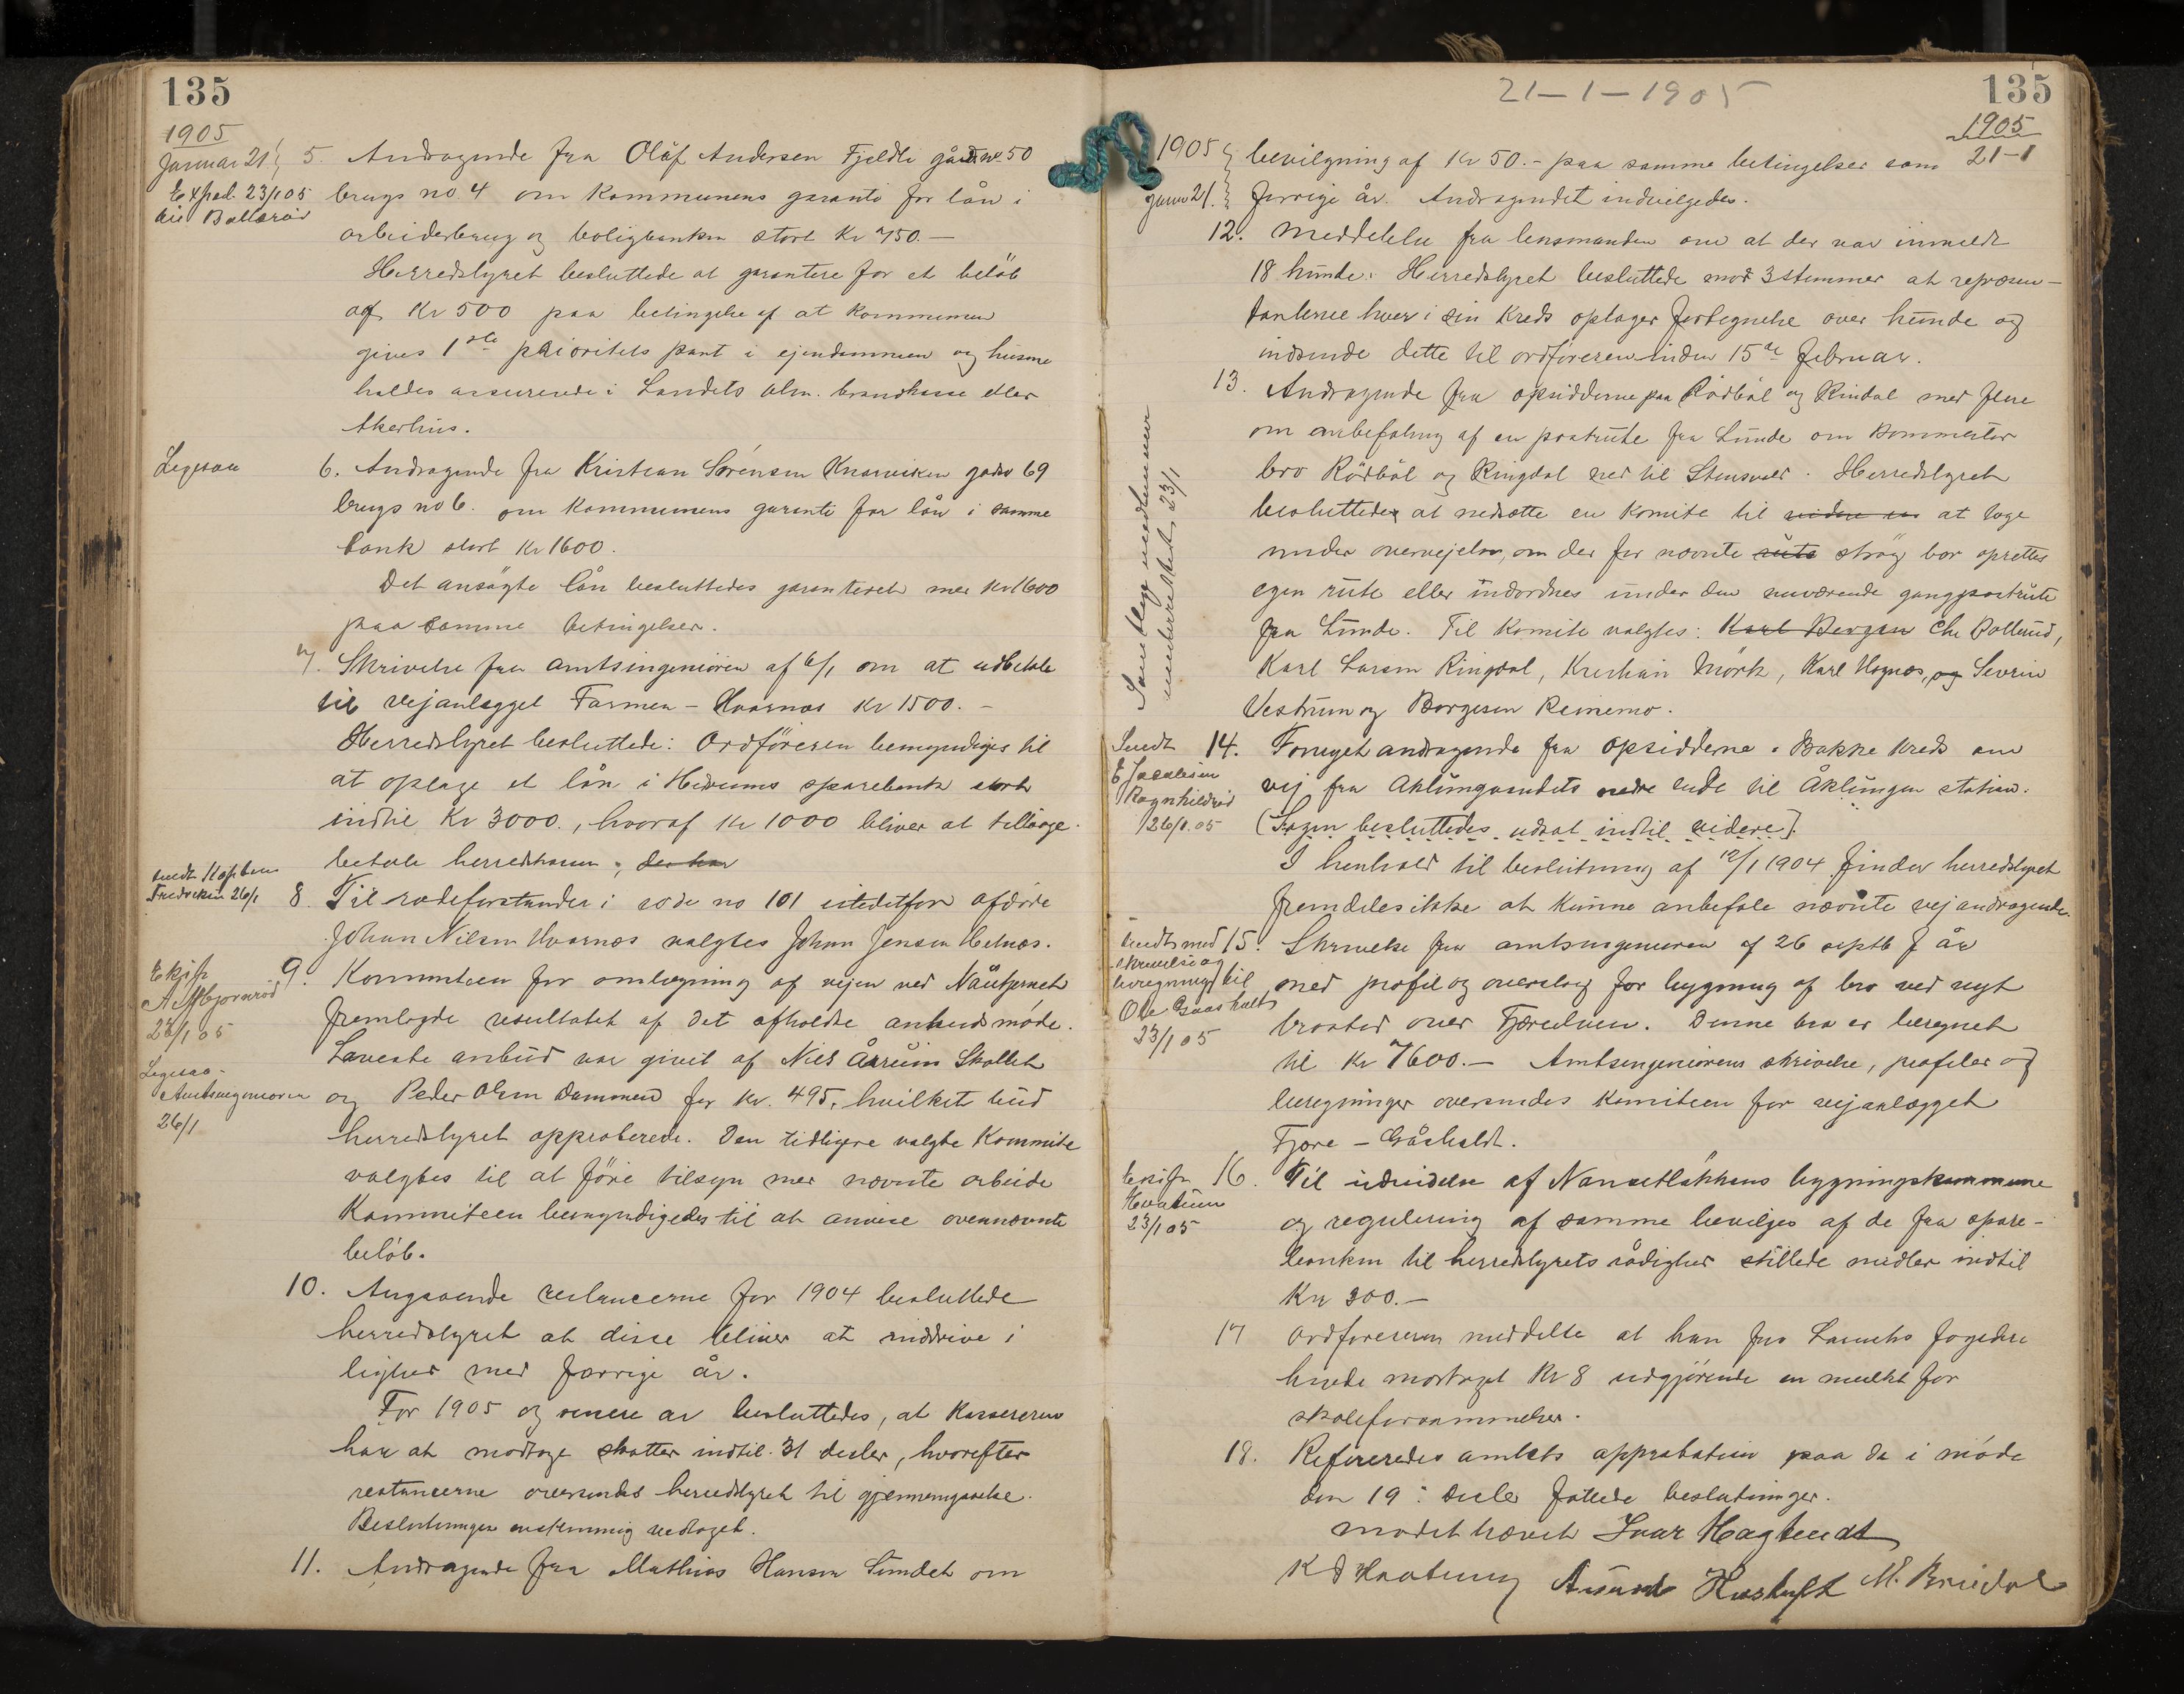 135
1905
Januar 21
Exped. 23/1 05
5. Andragende fra Olaf Andersen Fjeldli gårds no 50
brugs no 4 om kommunens garanti for lån i
arbeiderbrug og boligbanken stort Kr 750.-
Herredstyret besluttede at garantere for et beløb
af Kr 500 paa betingelse af at kommunen
gives 1ste prioritets pant i ejendommen og husene
holdes assurerede i Landets alm. brandkasse eller
Akerhus.
Ligesaa
6. Andragende fra Kristian Sörensen Knarviken gårds 69
brugs no 6. om kommunens garanti for lån i samme
bank stort Kr 1600.
Det ansögte lån besluttedes garanteret med Kr 1600
paa samme betingelser.
7. Skrivelse fra amtsingeniören af 6/1 om at udbetale
til vejanlægget Farmen - Hvarnes Kr 1500.-
Herredstyret besluttede: Ordföreren bemyndiges til
at optage et lån i Hedrums sparebank stort
indtil Kr 3000., hvoraf Kr 1000 bliver at tilbage-
betale herredskassen, der har
sendt
Fredriksen 26/1
8. Til rodeforstander i rode no 101 istedetfor afdöde
Johan Nilsen Hvarnes valgtes Johan Jensen Helnæs.
9. Kommiteen for omlægning af vejen ved Nåutjernet
fremlagde resultatet af det afholdte anbudsmöde.
Laveste anbud var givet af Niels Åsrum Skollet
og Peder Olsen Dammen for kr. 495, hvilket bud
herredstyret approberede. Den tidligere valgte Kommite
valgtes til at före tilsyn med nævnte arbeide
Kommiteen bemyndigedes til at anvise ovennævnte
belöb.
Ekspd
A M Bjørnerød
23/1 05
Ligesaa -
Amtsingeniören
26/1
10. Angaaende restancerne for 1904 besluttede
herredstyret at disse bliver at inddrive i
lighed med forrige år.
For 1905 og senere år besluttedes, at kassereren
har at modtage skatter indtil 31 decbr, hvorefter
restancerne oversendes herredstyret til gjennemgaaelse.
Beslutningen enstemmig vedtaget.
11. Andragende fra Mathias Hansen Sundet om
21-1-1905
135
1905
21-1
1905
Januar 21.
bevilgning af Kr 50.- paa samme betingelser som
forrige år. Andragendet indvilgedes.
12. Meddelelse fra lensmanden om at der var inmeldt
18 hunde. Herredstyret besluttede mod 3 stemmer at repræsen-
tanterne hver i sin kreds optager fortegnelse over hunde og
indsende dette til ordföreren inden 15de februar.
13. Andragende fra opsidderne paa Rödböl og Rindal med flere
om anbefaling af en postrute fra Lunde om Kommester
bro Rödböl og Ringdal ned til Stensvold. Herredstyret
besluttedes at nedsætte en komite til at tage
under overvejelse, om der for nævnte rute strög bør oprettes
egen rute eller indordnes under den nuværende gangpostrute
fra Lunde. Til komite valgtes: Karl Bergan Chr Bollerud,
Karl Larsen Ringdal, Kristian Mörk, Karl Hognes, og Severin
Vestrum og Borgesen Reinemo.
Samtlige medlemmer
underrettet 23/1
Sendt
E Jacobsen
Ragnhildröd
26/1 05
14. Fornyet andragende fra opsidderne i Bakke kreds om
vej fra Aklungvandets nedre ende til Åklungen station.
(Sagen besluttedes udsat indtil videre).
I henhold til beslutning af 12/1 1904 finder herredstyret
fremdeles ikke at kunne anbefale nævnte vejandragende.
Sendt med
skrivelse og
beregning til
Ole Gaasholt
23/1 05
15. Skrivelse fra amtsingeniören af 26 septb f år
med profil og overslag for bygning af bro ved nyt
brosted over Fjæreelven. Denne bro er beregnet
til Kr 7600.- Amtsingeniörens skrivelse, profiler og
beregninger oversendes komiteen for vejanlægget
Fjære - Gåsholdt.
23/1 05
16. Til udvidelse af Nansetlökkens bygningskommune
og regulering af samme bevilges af de fra spare-
banken til herredstyrets rådighed stillede midler indtil
Kr 300.-
17 Ordföreren meddelte at han fra Laurviks fogderi
havde modtaget Kr 8 udgjörende en mulkt for
skoleforsömmelser.
18. Refereredes amtets approbation paa de i möde
den 19. decbr fattede beslutninger.
mödet hævet Ivar Hagtvedt